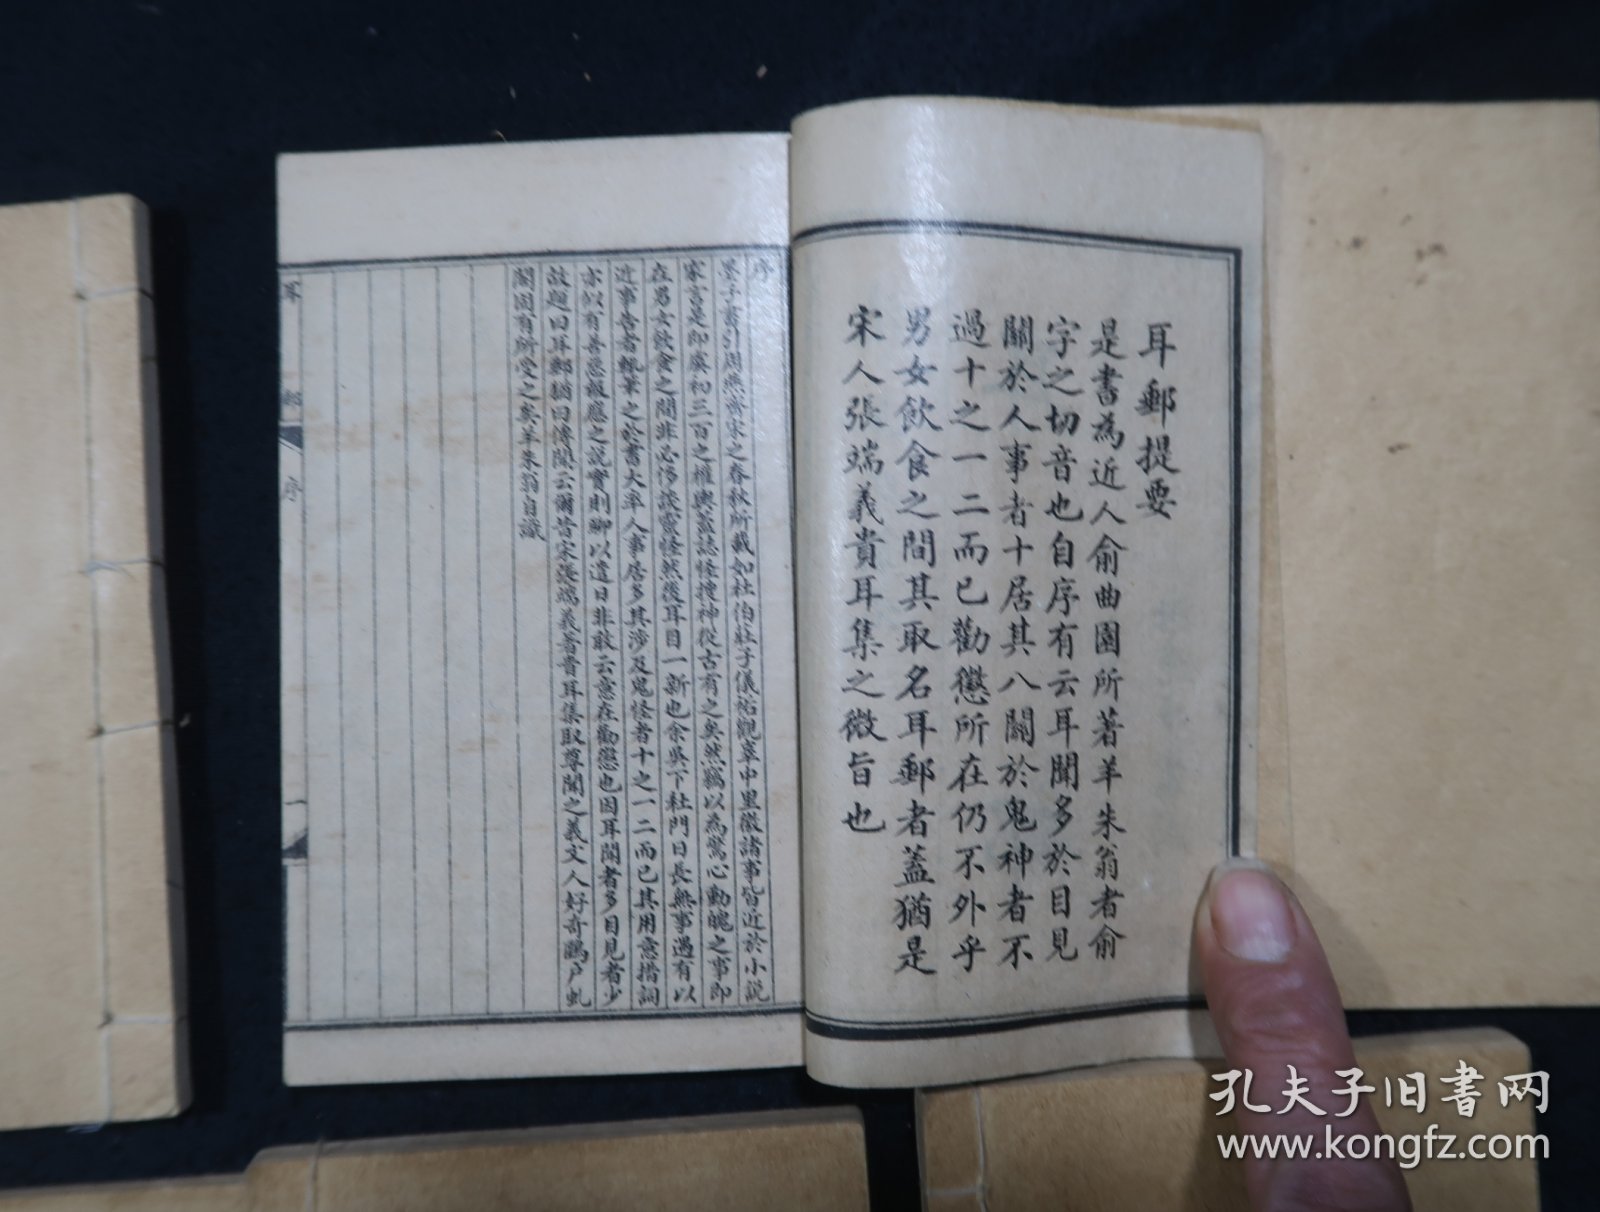 耳郵提要
是書為近人俞曲園所著羊朱翁者俞
字之切音也自序有云耳聞多於目見
關於人事者十居其八關於鬼神者不
過十之一二而已勸懲所在仍不外乎
男女飲食之間其取名耳郵者蓋猶是
宋人張端義貴耳集之微旨也
序
墨子書引周燕齊宋之春秋所載如杜伯莊子儀祏觀辜中里徼諸事皆近於小說
家言是即虞初三百之權輿蓋誌怪搜神從古有之矣然竊以為驚心動魄之事即
在男女飲食之間非必侈談靈怪然後耳目一新也余吳下杜門日長無事遇有以
近事告者輒筆之於書大率人事居多其涉及鬼怪者十之一二而已其用意措詞
亦似有善惡報應之說實則聊以遣日非敢云意在勸懲也因耳聞者多目見者少
故題曰耳郵猶曰傳聞云爾昔宋張端義著貴耳集取尊聞之義文人好奇鷗戶虬
閣固有所受之矣羊朱翁自識
耳郵 序 一
孔夫子旧书网
www.kongfz.com